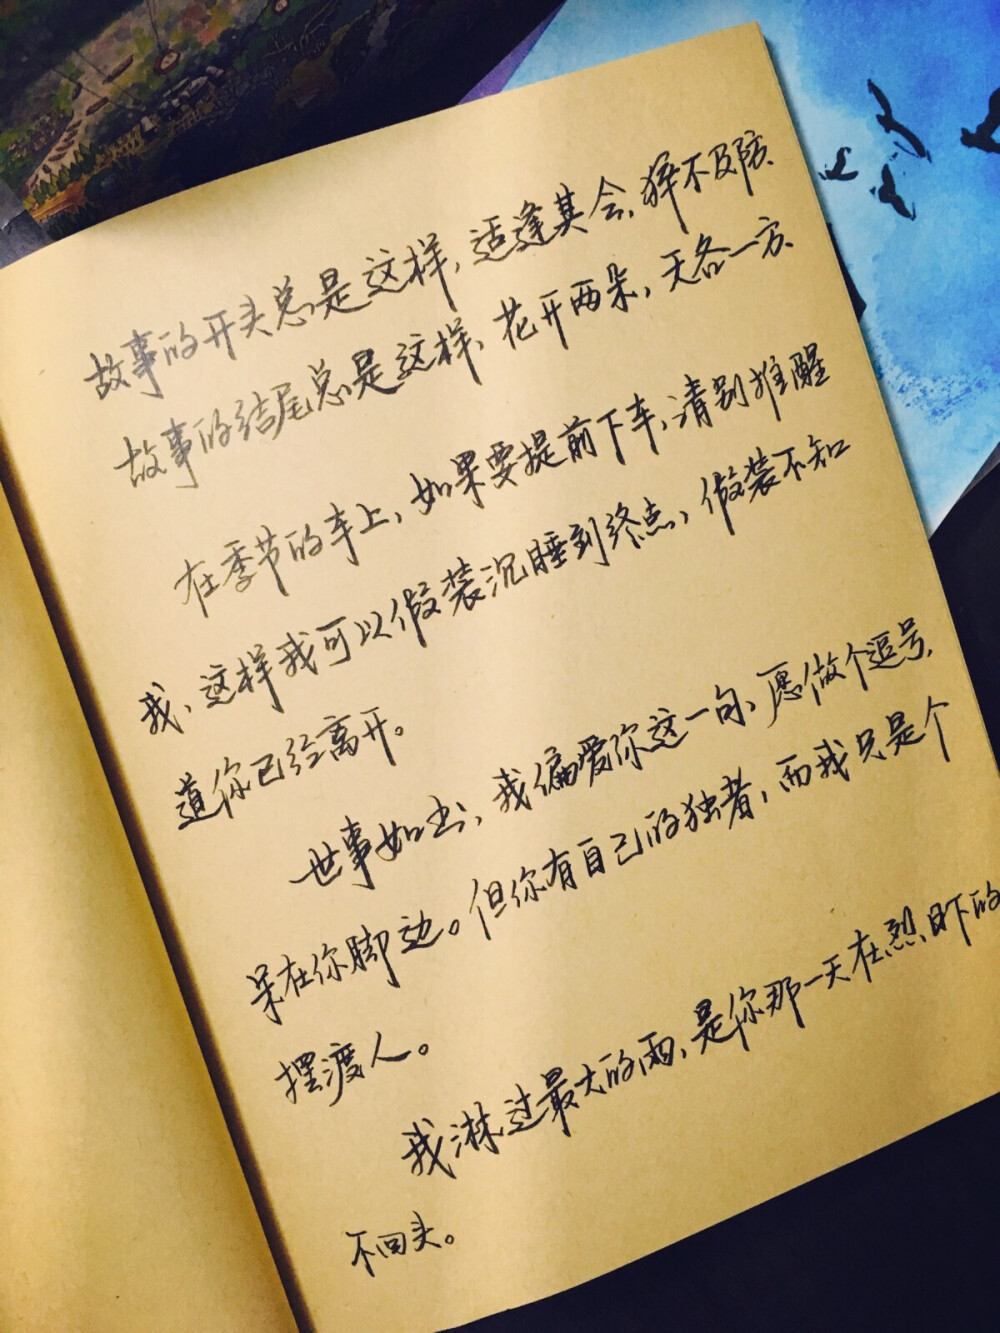 故事的开头总是这样,适逢其会,猝不及防.
故事的结尾总是这样,花开两朵,天各一方.
在季节的车上,如果要提前下车,请别推醒
我,这样我可以假装沉睡到终点,假装不知
道你已经离开。
世事如书,我偏爱你这一句,愿做个逗号,
呆在你脚边。但你有自己的独者,而我只是个
摆渡人。
我淋过最大的雨,是你那一天在烈日下的
不回头。